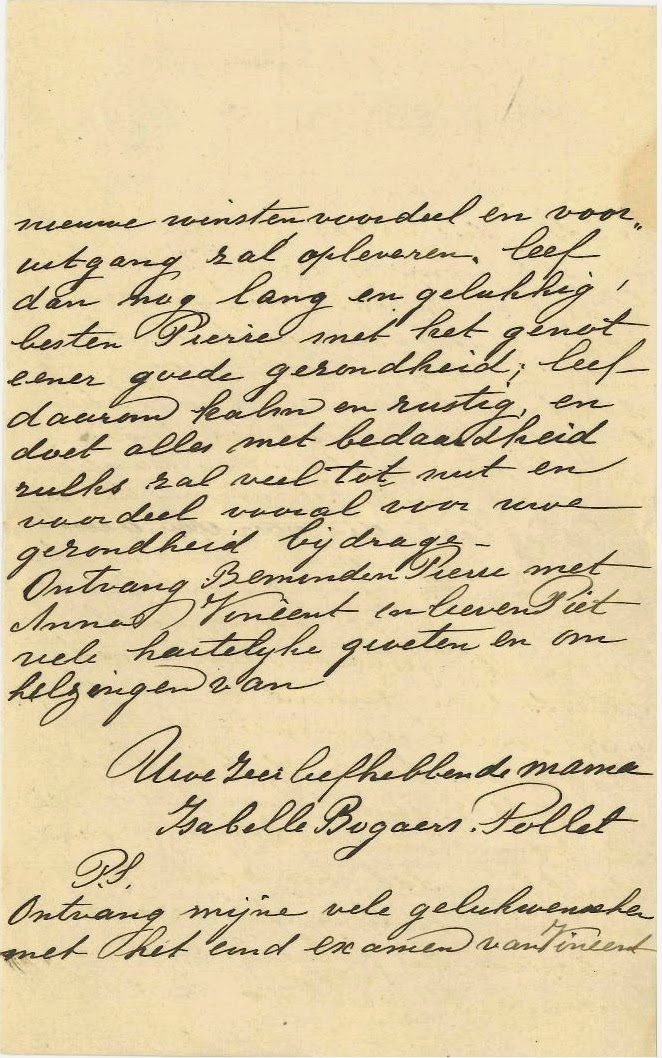 nieuwe winsten voordeel en voor„
uitgang zal opleveren. leef
dan nog lang en gelukkig,
besten Pierre met het genot
eener goede gezondheid; leef
daarom kalm en rustig, en
doet alles met bedaardheid
zulks zal veel tot nut en
voordeel vooral voor uwe
gezondheid bijdrage –
Ontvang Beminden Pierre met
Anna Vincent en lieven Piet
vele hartelyke groeten en om
helzingen van
Uwe zeer liefhebbende mama
Isabelle Bogaers. Pollet
P.S.
Ontvang mijne vele gelukwenschen
met het eind examen van Vincent